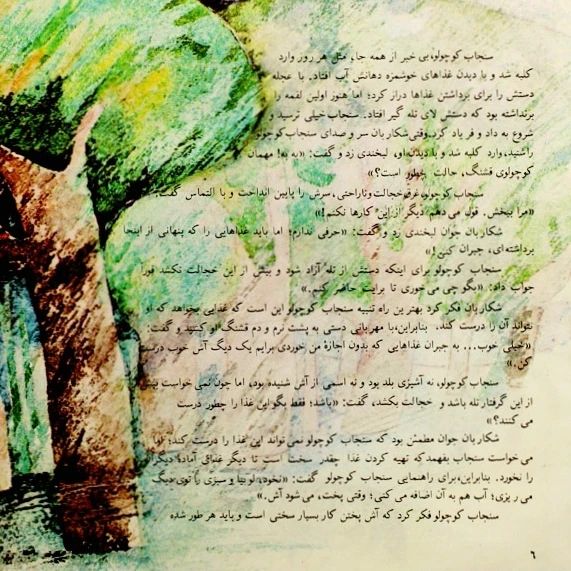 سنجاب کوچولو،بی خبر از همه جا، مثل هر روز وارد
کلبه شد و با دیدن غذاهای خوشمزه دهانش آب افتاد. با عجله
دستش را برای برداشتن غذاها دراز کرد؛ اما هنوز اولین لقمه را
برنداشته بود که دستش لای تله گیر افتاد. سنجاب خیلی ترسید و
شروع به داد و فریاد کرد.وقتی شکاربان سر و صدای سنجاب کوچولو
راشنید،وارد کلبه شد و با دیدن او، لبخندی زد و گفت: «به به! مهمان
کوچولوی قشنگ، حالت چطور است؟»
سنجاب کوچولو،غرق خجالت وناراحتی،سرش را پایین انداخت و با التماس گفت:
«مرا ببخش. قول می دهم دیگر از این کارها نکنم!»
شکاربان جوان لبخندی زد و گفت: «حرفی ندارم؛ اما باید غذاهایی را که پنهانی از اینجا
برداشته ای، جبران کنی!»
سنجاب کوچولو برای اینکه دستش از تله آزاد شود و بیش از این خجالت نکشد فورا
جواب داد: «بگو چی می خوری تا برایت حاضر کنم.»
شکاربان فکر کرد بهترین راه تنبیه سنجاب کوچولو این است که غذایی بخواهد که او
نتواند آن را درست کند. بنابراین،با مهربانی دستی به پشت نرم و دم قشنگ او کشید و گفت:
«خیلی خوب... به جبران غذاهایی که بدون اجازهٔ من خوردی برایم یک دیگ آش خوب درست
کن.»
سنجاب کوچولو، نه آشپزی بلد بود و نه اسمی از آش شنیده بود، اما چون نمی خواست بیش
از این گرفتار تله باشد و خجالت بکشد، گفت: «باشد؛ فقط بگو این غذا را چطور درست
می کنند؟»
شکاربان جوان مطمئن بود که سنجاب کوچولو نمی تواند این غذا را درست کند؛ اما
می خواست سنجاب بفهمد که تهیه کردن غذا چقدر سخت است تا دیگر غذای آماده دیگران
را نخورد. بنابراین،برای راهنمایی سنجاب کوچولو گفت: «نخود،لوبیا و سبزی را توی دیگ
می ریزی؛ آب هم به آن اضافه می کنی؛ وقتی پخت، می شود آش.»
سنجاب کوچولو فکر کرد که آش پختن کار بسیار سختی است و باید هر طور شده
۶